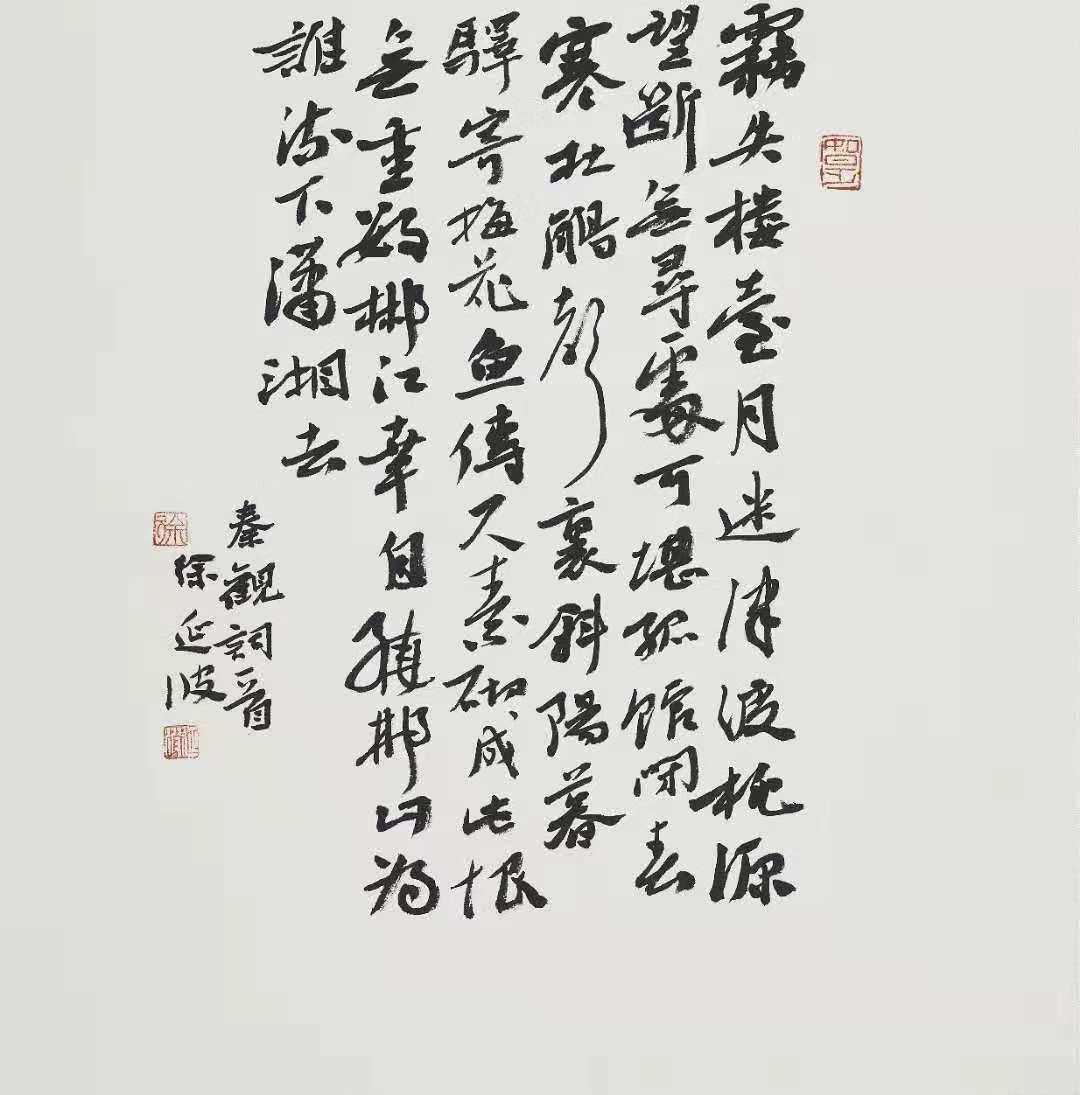 霧失樓臺月迷津渡桃源
望斷無尋處可堪孤館閉春
寒杜鵑聲裏斜陽暮
驛寄梅花魚傳尺素砌成此恨
無重數郴江幸自繞郴山為
誰流下瀟湘去
秦觀詞一首
徐延波
徐